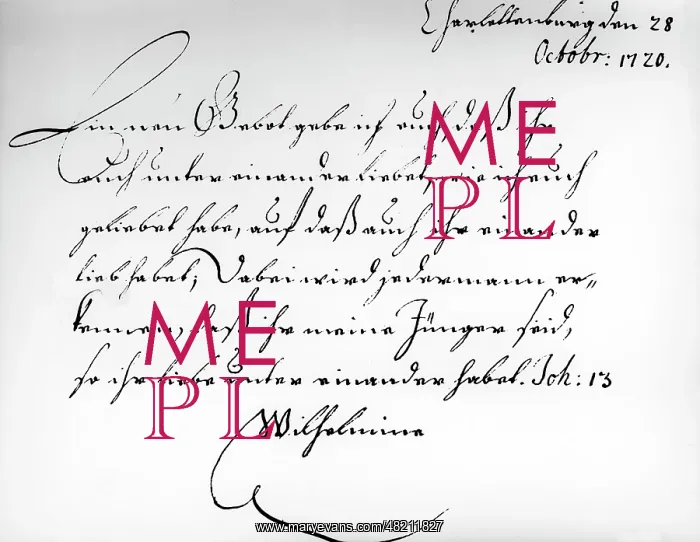 Charlottenburg den 28
Octobr: 1720.
Ein neu Gebot gebe ich euch, daß ihr
Euch unter einander liebet, wie ich euch
geliebet habe, auf daß auch ihr einander
lieb habet; Dabei wird jedermann er„
kennen, daß ihr meine Jünger seid,
so ihr Liebe unter einander habet. Joh: 13
Wilhelmine
ME
PL
ME
PL
www.maryevans.com/48211827